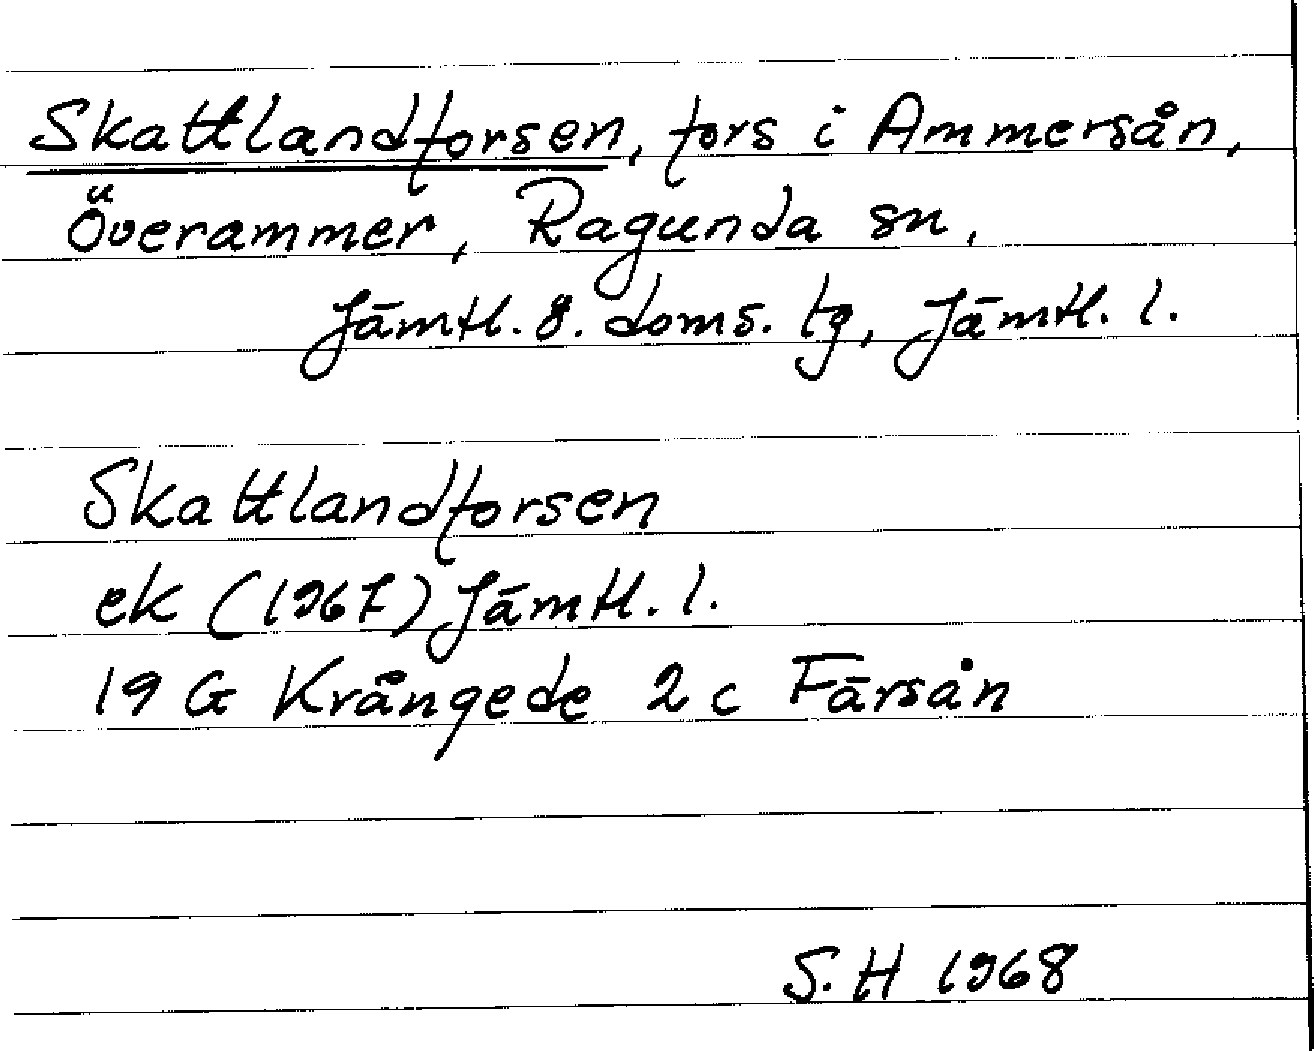 Skattlandforsen, fors i Ammersån,
Överammer, Ragunda sn,
Jämtl. ö. doms. tg, Jämtl. l.
Skattlandforsen
ek (1967) Jämtl. l.
19 G Krångede 2 c Färsån
S. H 1968